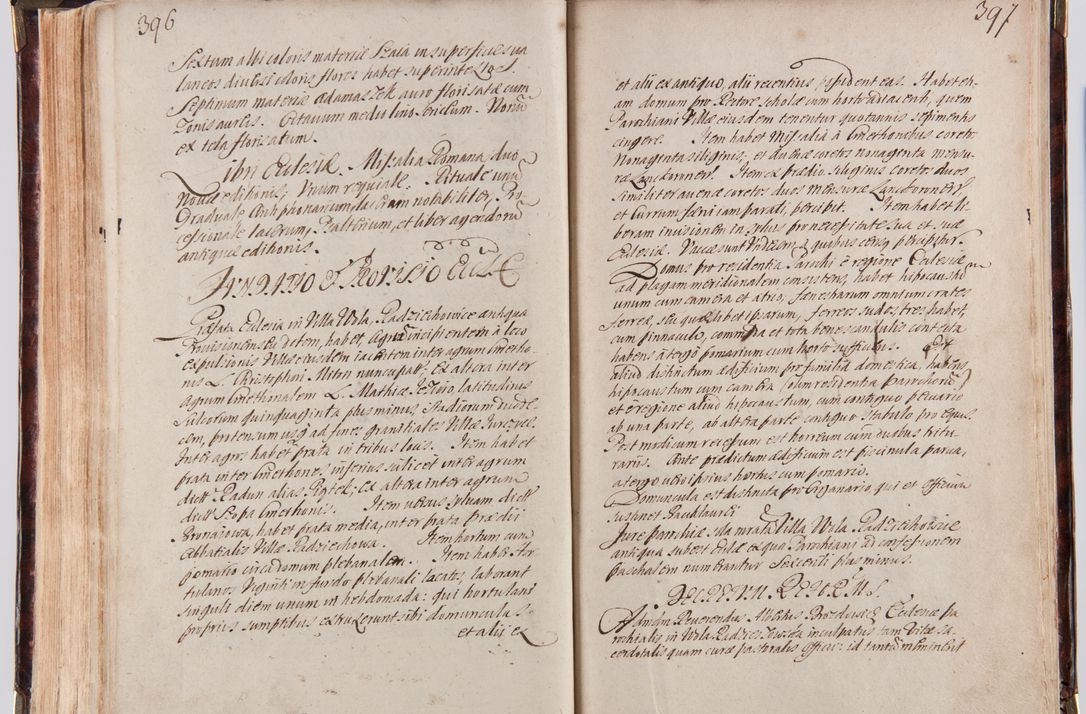 396
Sextum albi coloris materiæ Szaia in superficie sua
laneos diversi coloris flores habet superinte
Septimum materiæ adamaszek auro florisatæ cum
Zonis aureis. Octavum medii lini Nonum
ex tela florisatum.
Libri Ecclesiæ. Missalia Romana duo
Novæ editionis. Unum requiale. Rituale unum
Graduale Antiphonarium laceram notabiliter, Pro
cessionale lacerum, Psalterium, et liber agendorum
antiquæ editionis.
FUNDATIO et PROVISIO Eccl
Præfata Ecclesia in Villa Wola Radziechowice antiqua
Provisionem seu dotem, habet, Agrum incipientem à loco
expulsionis Villæ eiusdem iacentem inter agrum Cmetho-
nis L. Christophori Miten nuncupatum. Ex altera inter
agrum Cmethonalem L. Mathiæ latitudinis
Sulcorum quinquaginta plus minus, Stadiorum duode-
cim, protensum usq ad fines granitiales Villæ Jurczyce.
Inter agros habet prata in tribus locis. Item habet
prata inter Cmethones, inferius scilicet inter agrum
dicti Radun alias Piątek, ex altera inter agrum
dicti Szopa Cmethonis. Item versus sylvam dicti
Brunasowa, habet prata media, inter prata Prædii
Abbatialis Villæ Radziechowa. Item hortum cum
pomario circa domum plebanalem. Item habet hor-
tulanos Viginti in fundo plebanali locatos, laborant
singuli diem unum in hebdomada: qui hortulani
propriis sumptibus extruxerunt sibi domuncula s
et alii ex
397
et alii ex antiquo, alii recentius possident eas. Habet eti-
am domum pro Rectore scholæ cum horto adiacenti, quem
Parochiani Villæ eiusdem tenentur quotannis sepimentis
cingere. Item habet Missalia à Cmethonibus coretos
Nonaginta siliginis, et avenæ coretos nonaginta mensu-
ræ Lanckoronen. Item ex prædio siliginis coretos duos
similiter avenæ coretos duos mensuræ Lanckoronen,
et currum fæni iam parati, percipit. Item habet li-
beram invisionem in sylvis pro necessitate sua et suæ
Ecclesiæ. Vaccæ sunt Undecim à quibus census percipitur.
Domus pro residentia Parochi è regione Ecclesiæ
ad plagam meridionalem consistens, habet hipocaustum
unum cum camera et atrio, fenestrarum omnium crates
ferreæ, seu quælibet ipsarum, ferreos sudes, tres habet,
cum pinnaculo, commoda et tota bene scandulis contecta
habens à tergo pomarium cum horto sufficiens. Est
aliud distinctum ædificium pro familia domestica, habens
hipocaustum cum cambra (olim residentia Parochorum)
et è regione aliud hipocaustum, cum contiguo pecuario
ab una parte, ab altera parte contiguo stabulo pro equis.
Post modicum recessum est horreum cum duabus tritu-
rariis. Ante prædictum ædificium est piscinula parva,
à tergo vero ipsius hortus cum pomario.
Domuncula est distincta pro Organario, qui et officium
sustinet Bacalaurei
Jure parochiæ solum rata Villa Wola Radziechowice
antiqua subest sedæ ex qua Parochiani ad confessionem
Paschalem numerantur Sexcenti plus minus.
DECRETUM REFORM.
Admodum Reverendus Albertus Ecclesiæ pa
rochialis in Wola Radziechowska inculpatus tam vitæ sa-
cerdotalis quam curæ pastoralis officii: id tantum